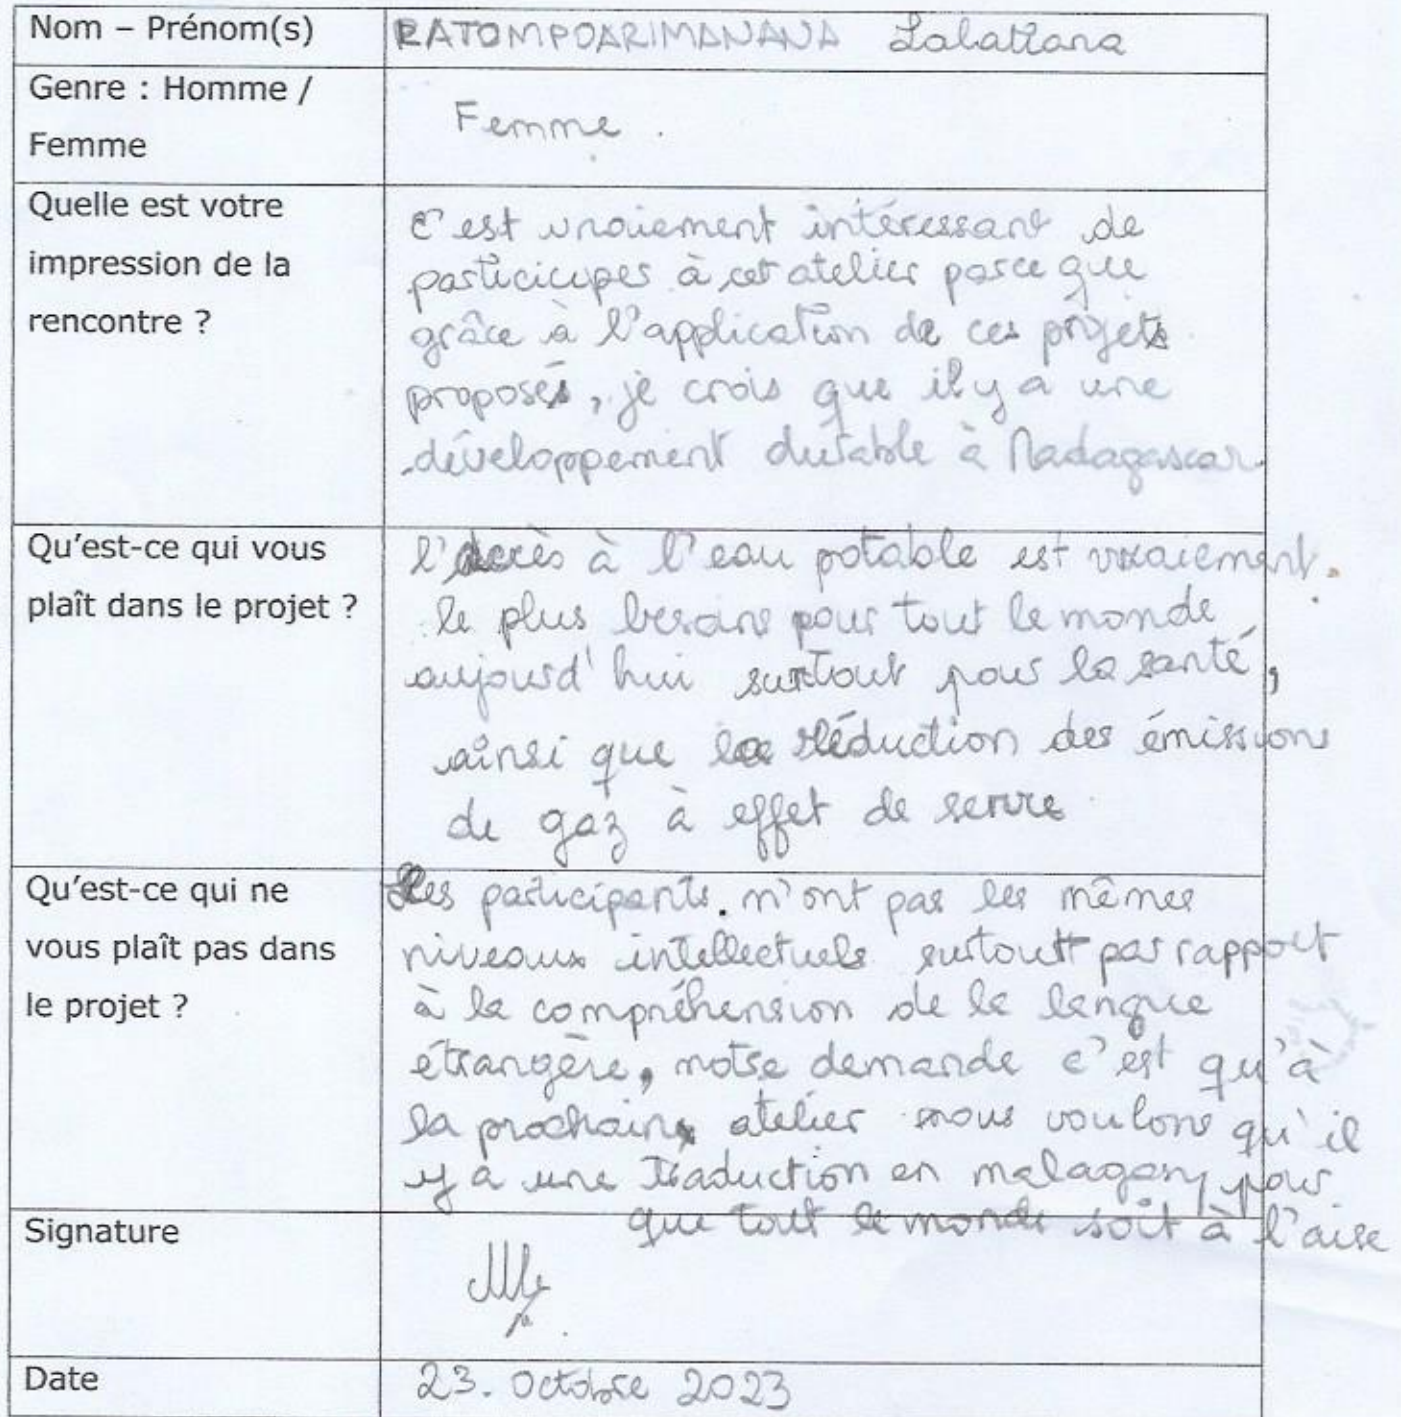 Nom – Prénom(s)
RATOMPOARIMANANA Lalatiana
Genre : Homme /
Femme
Femme .
Quelle est votre
impression de la
rencontre ?
C'est vraiement intéressant de
particicipes à cet atelier parce que
grâce à l'application de ces projets
proposés, je crois que il y a une
développement durable à Madagascar.
Qu'est-ce qui vous
plaît dans le projet ?
l'accès à l'eau potable est vraiement.
le plus besoins pour tout le monde
aujourd'hui surtout pour la santé,
ainsi que la réduction des émissions
de gaz à effet de serre
Qu'est-ce qui ne
vous plaît pas dans
le projet ?
Les participants. n'ont pas les mêmes
niveaux intellectuels surtout par rapport
à la compréhension de la langue
étrangère, notre demande c'est qu'à
la prochain atelier nous voulons qu'il
y a une traduction en malagasy pour
que tout le monde soit à l'aise
Signature
Date
23. Octobre 2023